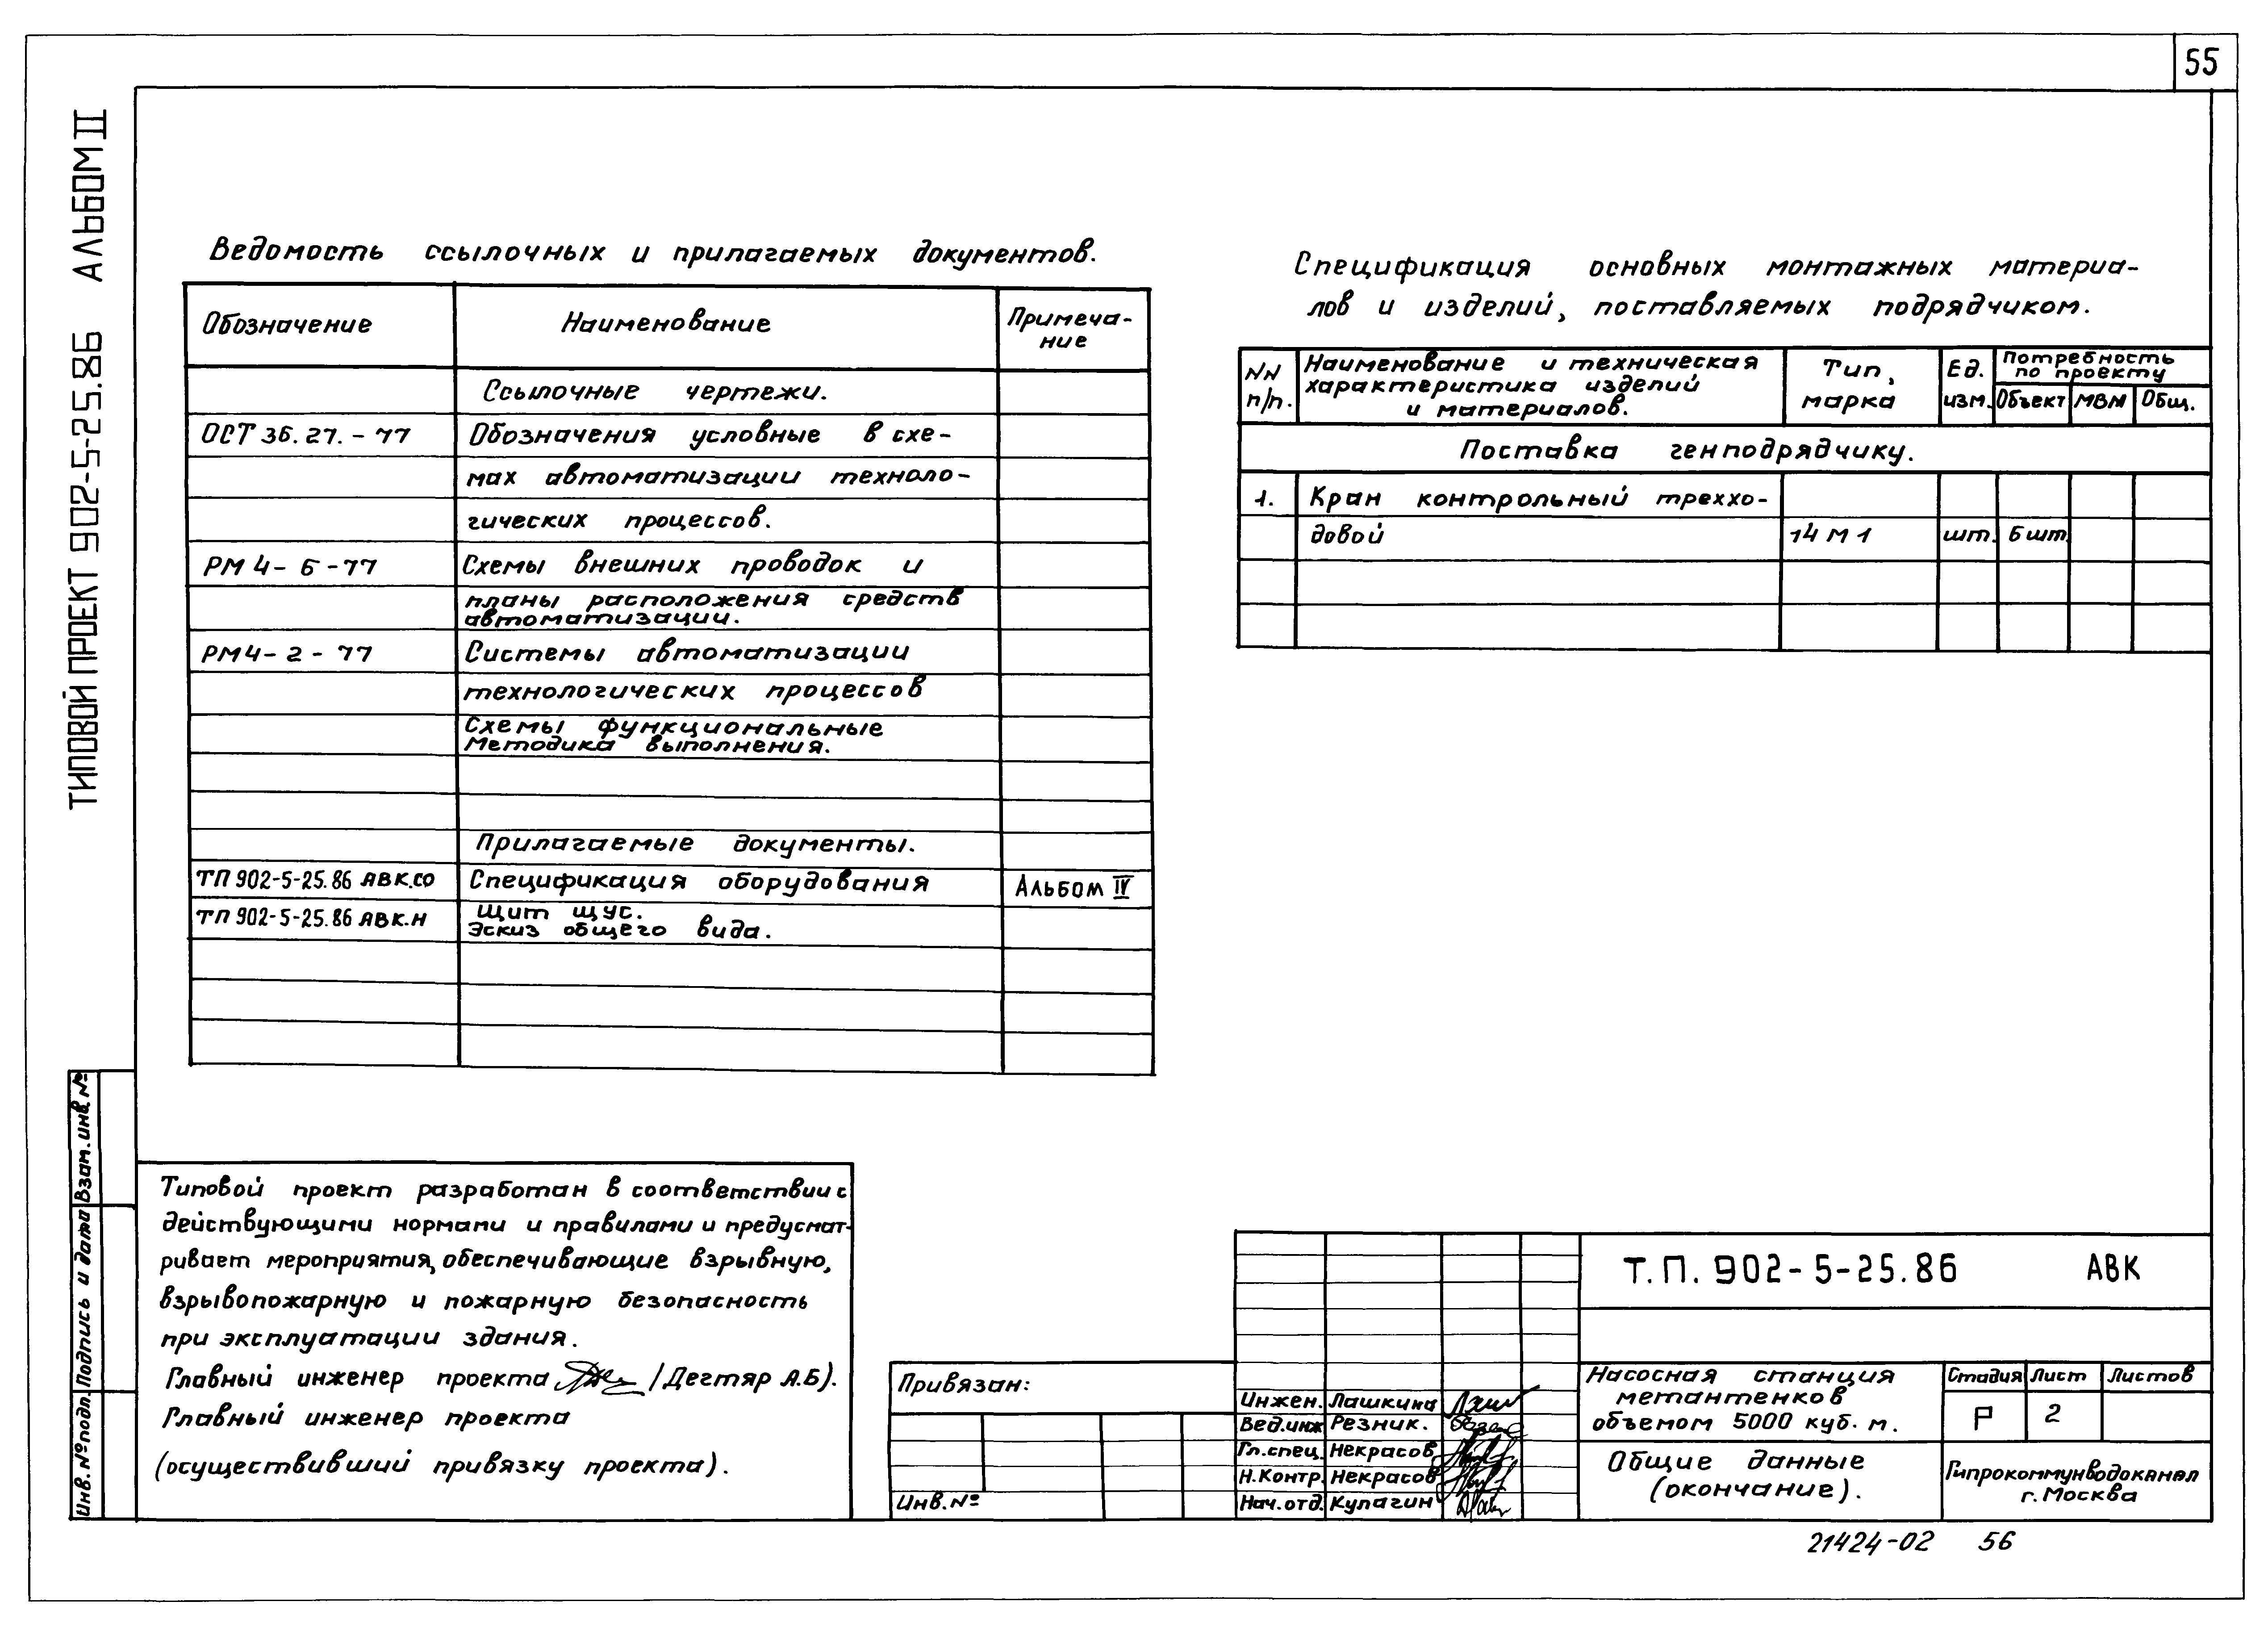 55
ТИПОВОЙ ПРОЕКТ 902-5-25.86 АЛЬБОМ II
Ведомость ссылочных и прилагаемых документов.
Обозначение
Наименование
Примеча-
ние
Ссылочные чертежи.
ОСТ 36.27.-77
Обозначения условные в схе-
мах автоматизации техноло-
гических процессов.
РМ 4-6-77
Схемы внешних проводок и
планы расположения средств
автоматизации.
РМ4-2-77
Системы автоматизации
технологических процессов
Схемы функциональные
Методика выполнения.
Прилагаемые документы.
ТП 902-5-25.86 АВК.СО
Спецификация оборудования
Альбом IV
ТП 902-5-25.86 АВК.Н
Щит ЩУС.
Эскиз общего вида.
Спецификация основных монтажных материа-
лов и изделий, поставляемых подрядчиком.
NN
п/п.
Наименование и техническая
характеристика изделий
и материалов.
Тип,
марка
Ед.
изм.
Потребность
по проекту
Объект
МВМ
Общ.
Поставка генподрядчику.
1.
Кран контрольный треххо-
довой
14М1
шт.
6 шт.
Типовой проект разработан в соответствии с
действующими нормами и правилами и предусмат-
ривает мероприятия, обеспечивающие взрывную,
взрывопожарную и пожарную безопасность
при эксплуатации здания.
Главный инженер проекта /Дегтяр А.Б).
Главный инженер проекта
(осуществивший привязку проекта).
Взам.инв.№
Подпись и дата
Инв.№подл.
Привязан:
Инв.№
Инжен. Лашкина
Вед.инж Резник.
Гл.спец. Некрасов
Н.Контр. Некрасов
Нач.отд. Кулагин
Т.П. 902-5-25.86 АВК
Насосная станция
метантенков
объемом 5000 куб. м.
Стадия
Лист
Листов
Р
2
Общие данные
(окончание).
Гипрокоммунводоканал
г. Москва
21424-02 56